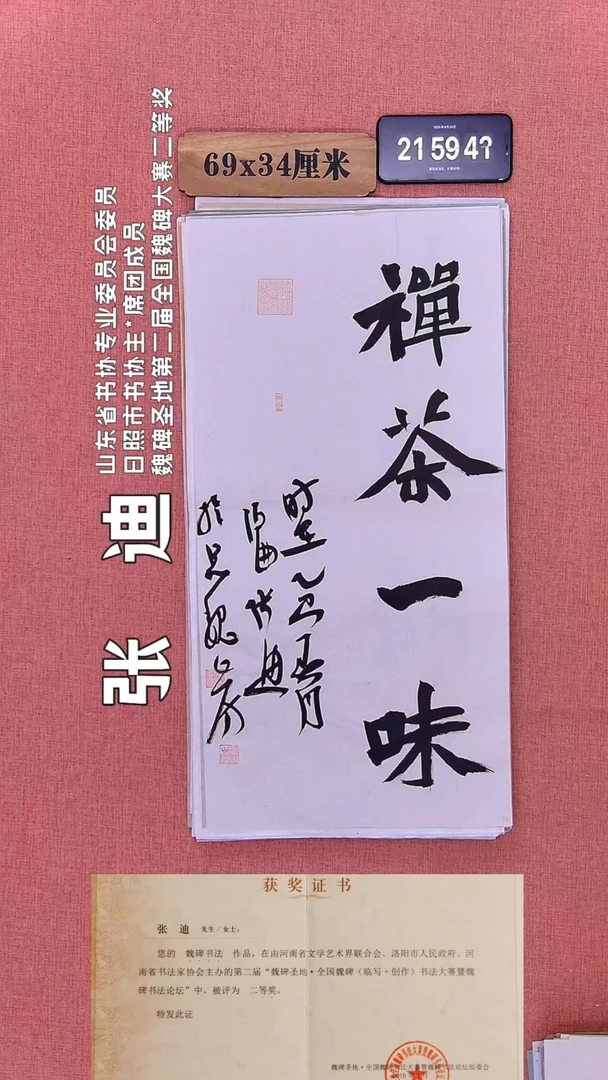 69x34厘米
21 59 47
山东省书协专业委员会委员
日照市书协主*席团成员
魏碑圣地第二届全国魏碑大赛二等奖
张 迪
禪茶一味
时在乙巳
张迪
获奖证书
张 迪 先生/女士:
您的 魏碑书法 作品,在由河南省文学艺术界联合会、洛阳市人民政府、河
南省书法家协会主办的第二届“魏碑圣地·全国魏碑(临写+创作)书法大赛暨魏
碑书法论坛”中,被评为 二等奖。
特发此证
魏碑圣地·全国魏碑书法大赛暨魏碑书法论坛组委会